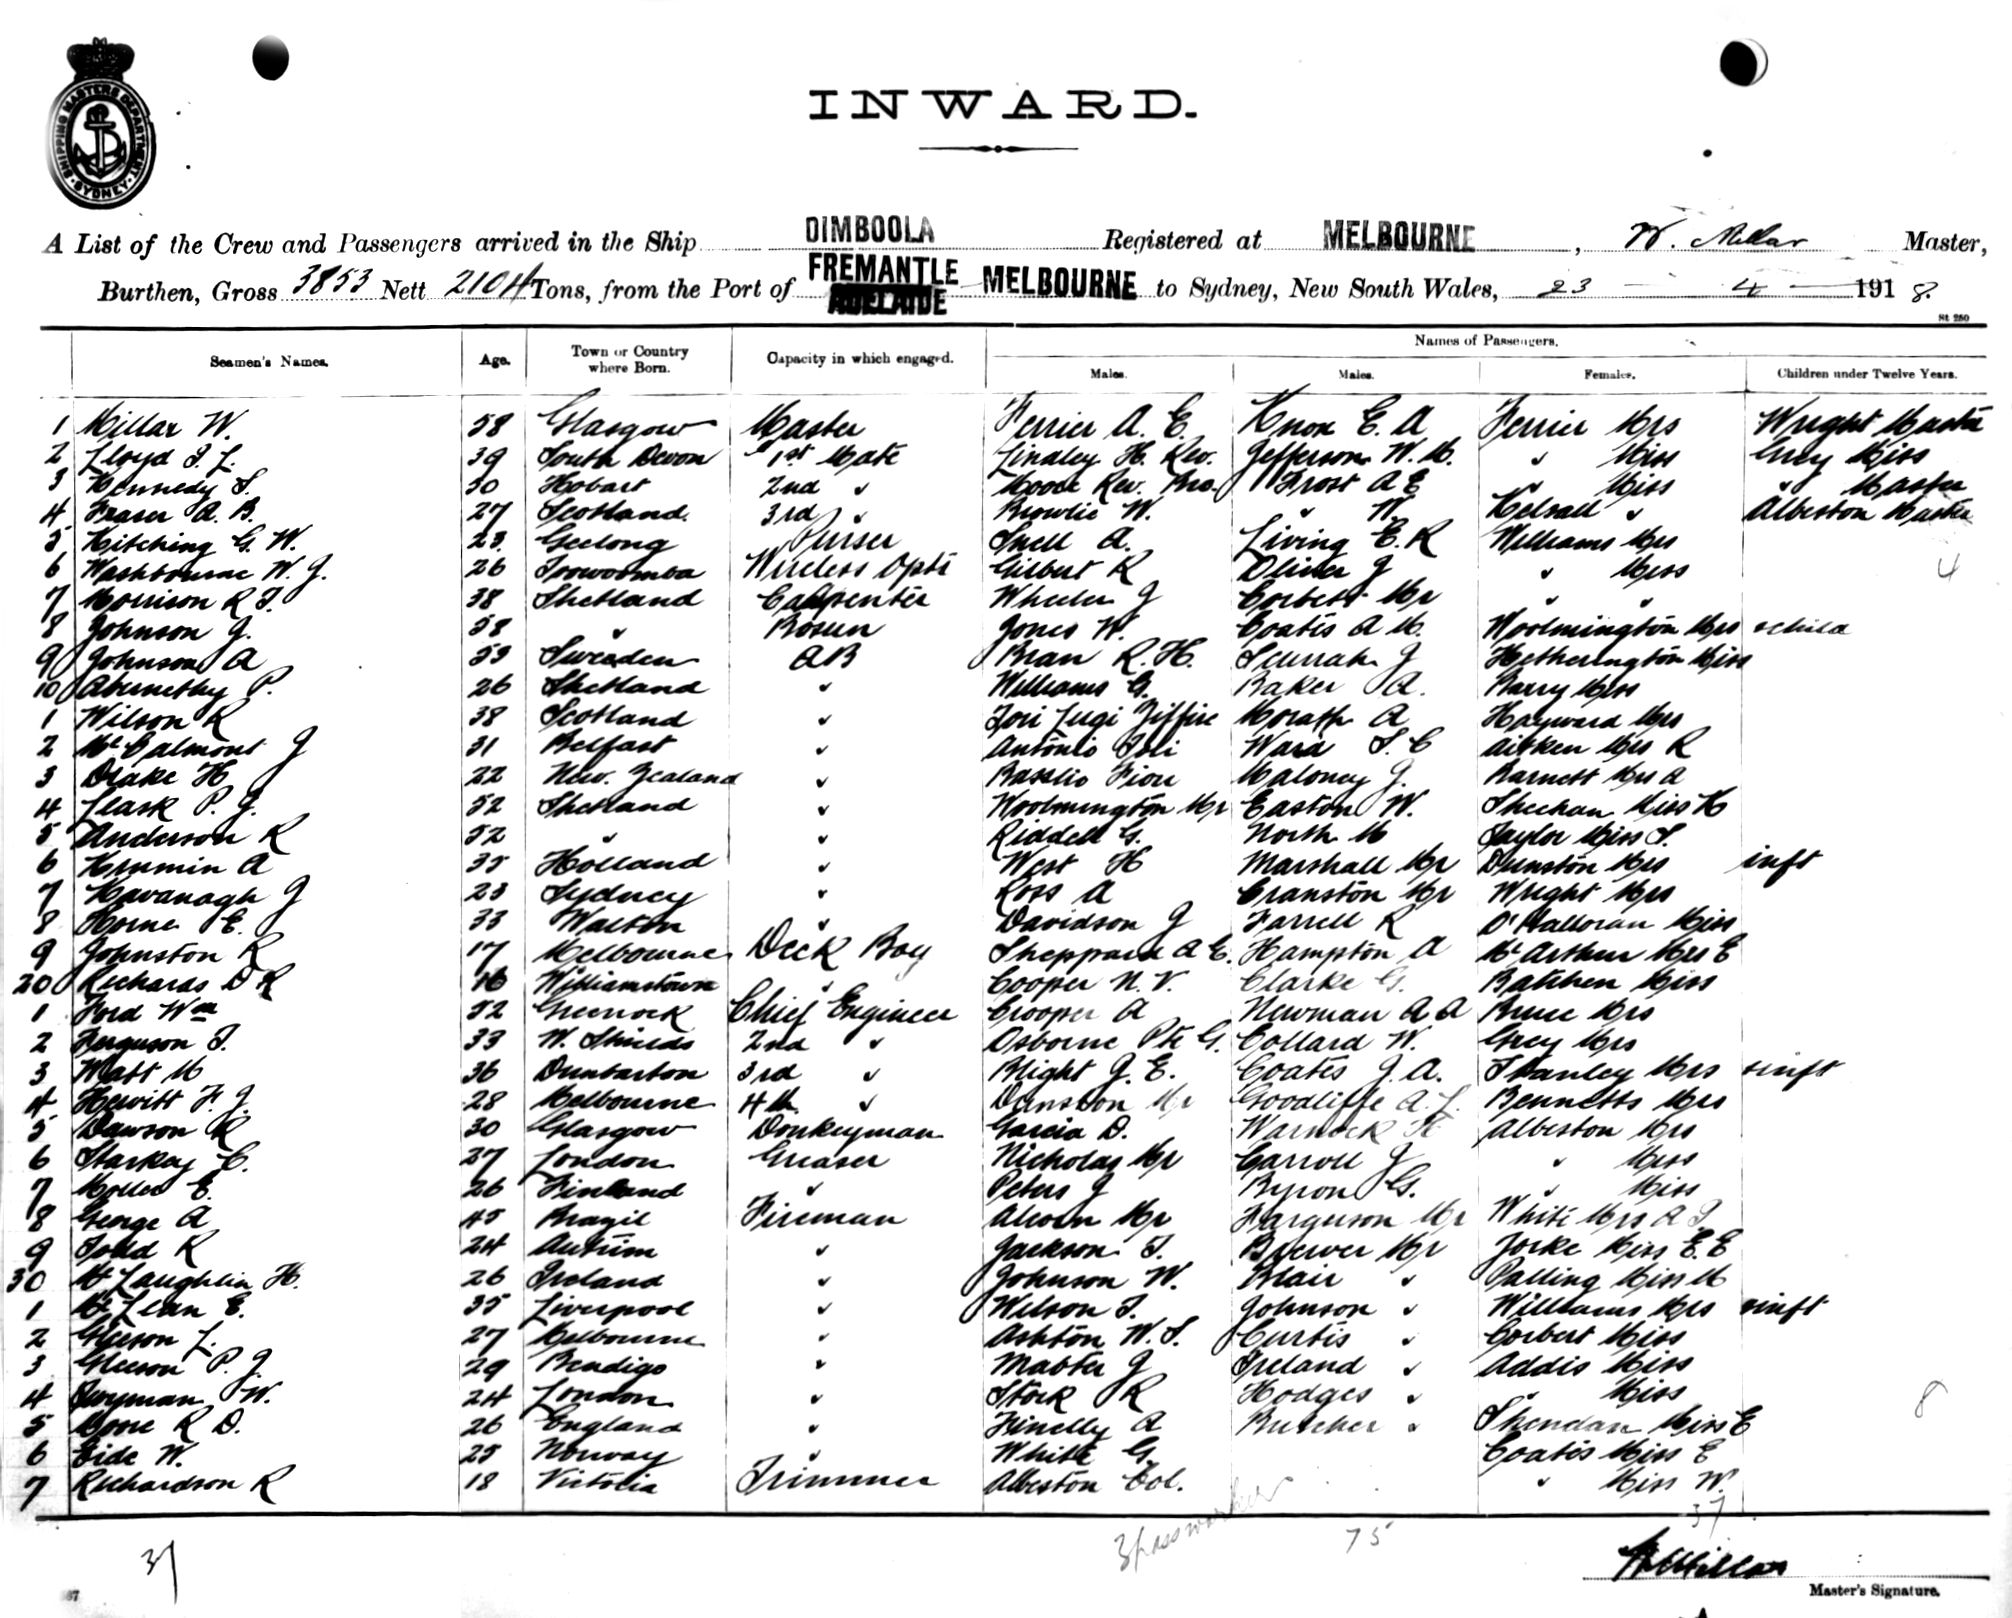 SHIPPING MASTERS DEPARTMENT SYDNEY
INWARD.
A List of the Crew and Passengers arrived in the Ship DIMBOOLA Registered at MELBOURNE, W. Millar Master,
Burthen, Gross 3853 Nett 2104 Tons, from the Port of FREMANTLE ADELAIDE MELBOURNE to Sydney, New South Wales, 23 - 4 - 1918.
St 280
Names of Passengers.
Seamen's Names. Age. Town or Country where Born. Capacity in which engaged. Males. Males. Females. Children under Twelve Years.
1 Millar W. 58 Glasgow Master Ferrier A. E. Knox E. A Ferrier Mrs Wright Master
2 Lloyd J. L. 39 South Devon 1st Mate Lindley H. Rev. Jefferson W. M. " Miss Grey Miss
3 Kennedy S. 30 Hobart 2nd " Moore Rev. Frost A E " Miss " Master
4 Fraser A. B. 27 Scotland. 3rd " Brownlie W. " W. Kelsall " Alberton Master
5 Hitching G. W. 23. Geelong Purser Snell A. Living E. R Williams Mrs
6 Washbourne W. J. 26 Toowoomba Wireless Optr Gilbert R Oliver J " Miss 4
7 Morrison R J. 38 Shetland Carpenter Wheeler J Corbett Mr " "
8 Johnson J. 58 " Bosun Jones W. Coates A M. Woolmington Mrs & child
9 Johnson A 53 Sweeden AB Bran R. H. Scurrah J Hetherington Miss
10 Abernethy P. 26 Shetland " Williams G. Baker A. Barry Miss
1 Wilson R 38 Scotland " Tori Lugi Ziffire Morath A Hayward Mrs
2 McCalmont J 31 Belfast " Antonio Toli Ward S. C Aitken Mrs R
3 Drake H 22 New Zealand " Basslio Fiori Maloney J. Barnett Mrs A
4 Leask P. J. 52 Shetland " Woolmington Mr Easton W. Sheehan Miss K
5 Anderson R 52 " " Riddell G. North M Taylor Miss S.
6 Kemmin A 35 Holland " West H Marshall Mr Dunston Mrs inft
7 Kavanagh J 23 Sydney " Ross A Cranston Mr Wright Mrs
8 Horne E. 33 Walton " Davidson J Farrell R O'Halloran Miss
9 Johnston R 17 Melbourne Deck Boy Sheppard A E. Hampton A McArthur Mrs E
20 Richards D R 16 Williamstown " Cooper N. V. Clarke G. Batchen Miss
1 Ford Wm 52 Greenock Chief Engineer Crooper A Newman A A Bruce Mrs
2 Ferguson J. 33 W. Shields 2nd " Osborne Pte G. Collard W. Grey Mrs
3 Watt M 36 Dunbarton 3rd " Blight J. E. Coates J. A. Stanley Mrs & inft
4 Hewitt F. J. 28 Melbourne 4th " Dunston Mr Goodliffe A. L. Bennetts Mrs
5 Dawson R 30 Glasgow Donkeyman Garcia D. Warnock H Alberton Mrs
6 Starkey C. 27 London Greaser Nicholas Mr Carroll J " Miss
7 Moller E. 26 Finland " Peters J Byron G. " Miss
8 George A 45 Brazil Fireman Alcorn Mr Farguson Mr White Mrs A J
9 Todd R 24 Antrim " Jackson T. Brewer Mr Yorke Miss E. E
30 McLaughlin H. 26 Ireland " Johnson W. Blair " Palling Miss M
1 McLean E. 35 Liverpool " Wilson J. Johnson " Williams Mrs & inft
2 Gleeson L. 27 Melbourne " Ashton W. S. Curtis " Corbert Miss
3 Gleeson P. J. 29 Bendigo " Mabter J Ireland " Addis Miss
4 Twyman W. 24 London " Stock R Hodges " " Miss
5 Moore R D. 26 England " Finelly A Butcher " Shendan Miss E 8
6 Eide W. 25 Norway " White G. Coates Miss E
7 Richardson R 18 Victoria Trimmer Alberton Col. " Miss W.
37 75 37
W Millar
Master's Signature.